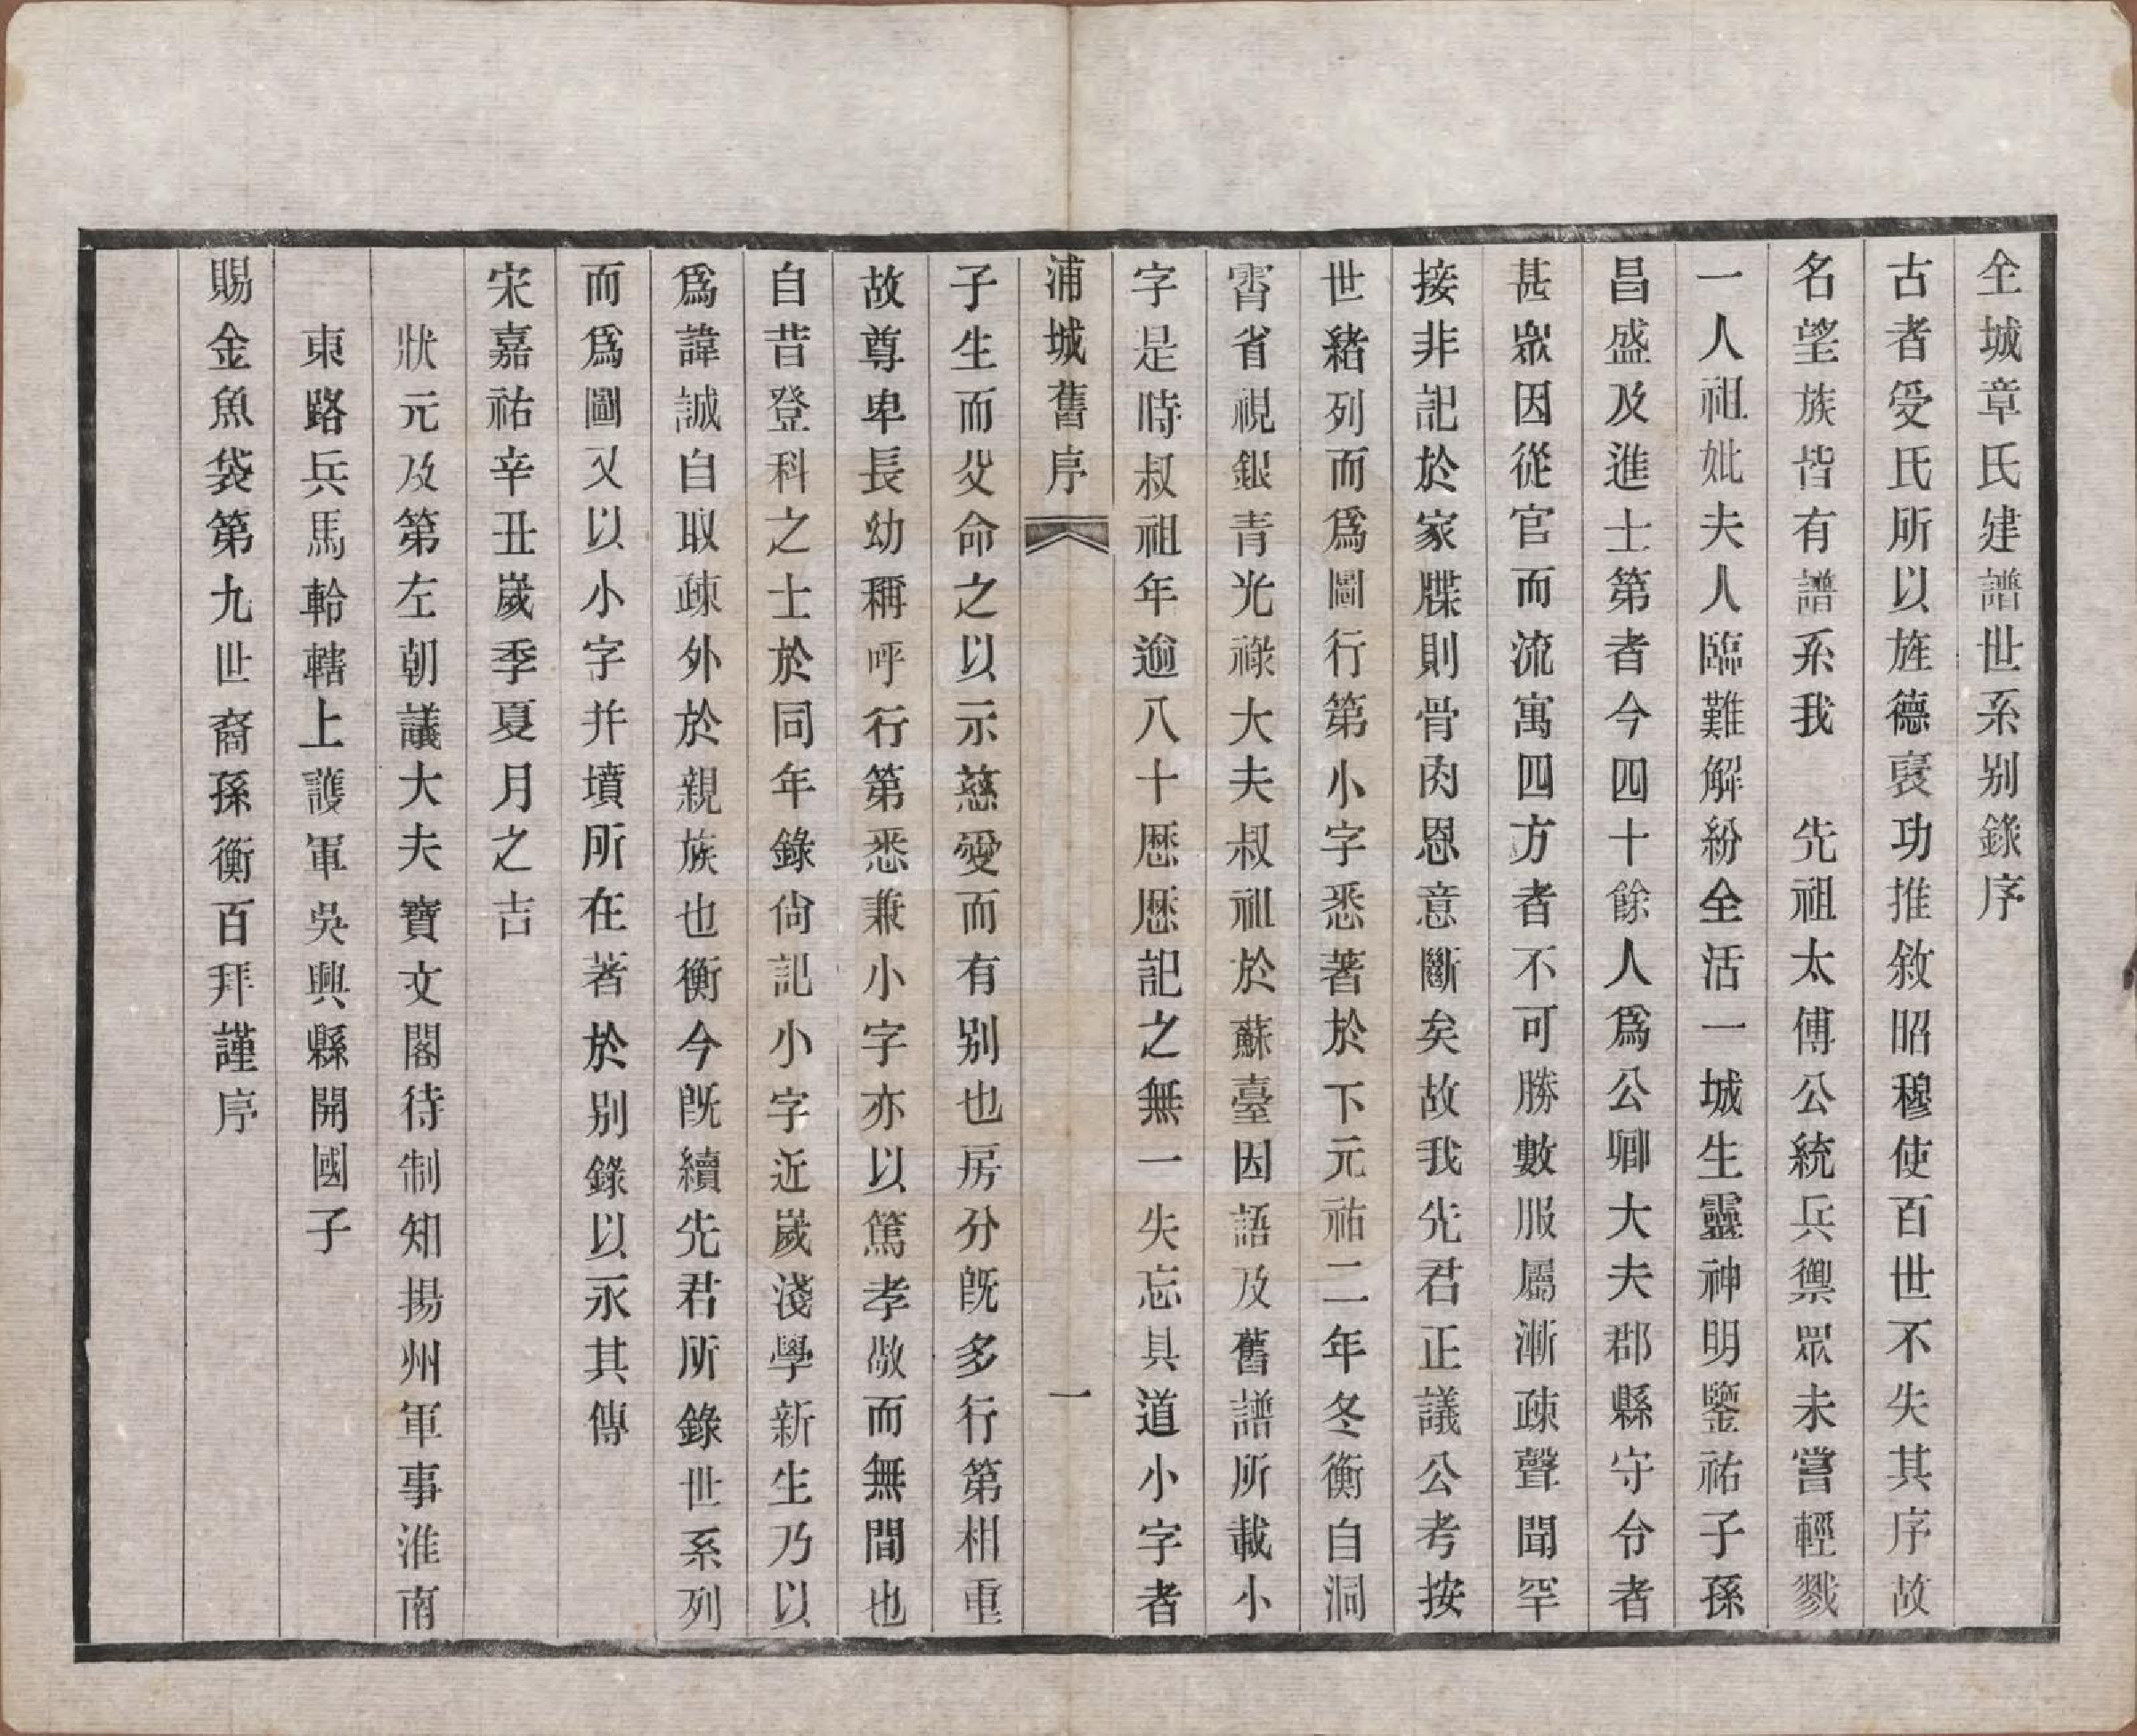 全城章氏建譜世系别錄序
古者受氏所以旌德襃功推敘昭穆使百世不失其序故
名望族皆有譜系我　先祖太傅公統兵禦眾未嘗輕戮
一人祖妣夫人臨難解紛全活一城生靈神明鑒祐子孫
昌盛及進士第者今四十餘人爲公卿大夫郡縣守令者
甚眾因從官而流寓四方者不可勝數服屬漸疎聲聞罕
接非記於家牒則骨肉恩意斷矣故我先君正議公考按
世緒列而爲圖行第小字悉著於下元祐二年冬衡自洞
霄省視銀青光祿大夫叔祖於蘇臺因語及舊譜所載小
字是時叔祖年逾八十歷歷記之無一失忘具道小字者
浦城舊序　一
子生而父命之以示慈愛而有别也房分旣多行第相重
故尊卑長幼稱呼行第悉兼小字亦以篤孝敬而無間也
自昔登科之士於同年錄尙記小字近歲淺學新生乃以
爲諱誠自取疎外於親族也衡今旣續先君所錄世系列
而爲圖又以小字并墳所在著於别錄以永其傳
宋嘉祐辛丑歲季夏月之吉
狀元及第左朝議大夫寶文閣待制知揚州軍事淮南
東路兵馬軨轄上護軍吳興縣開國子
賜金魚袋第九世裔孫衡百拜謹序